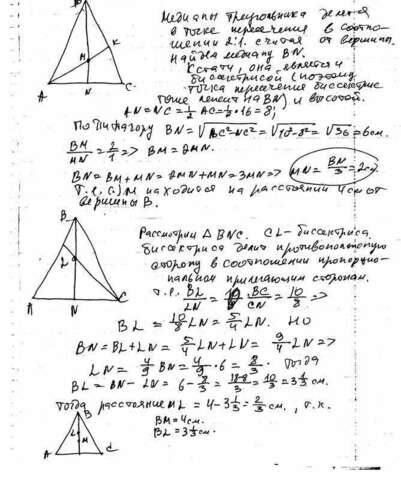 Медианы треугольника делятся
в точке пересечения в соотно-
шении 2:1, считая от вершины.
Найдем медиану BN.
Кстати, она является и
биссектрисой (поэтому
точка пересечения биссектрис
тоже лежит на BN) и высотой.
AN = NC = 1/2 AC = 1/2 · 16 = 8;
По Пифагору BN = √BC²-NC² = √10²-8² = √36 = 6 см.
BM/MN = 2/1 => BM = 2MN.
BN = BM + MN = 2MN + MN = 3MN => MN = BN/3 = 2 см.
Т.е. M находится на расстоянии 4 см от
вершины B.
B
K
M
A N C
Рассмотрим Δ BNC. CL - биссектриса.
Биссектриса делит противоположную
сторону в соотношении пропорцио-
нальном прилежащим сторонам.
т.е. BL/LN = BC/CN = 10/8 =>
BL = 10/8 LN = 5/4 LN. Но
BN = BL + LN = 5/4 LN + LN = 9/4 LN =>
LN = 4/9 BN = 4/9 · 6 = 8/3. Тогда
BL = BN - LN = 6 - 8/3 = 18-8/3 = 10/3 = 3 1/3 см.
B
L
A N C
Тогда расстояние ML = 4 - 3 1/3 = 2/3 см., т.к.
BM = 4 см.
BL = 3 1/3 см.
B
L
M
A C